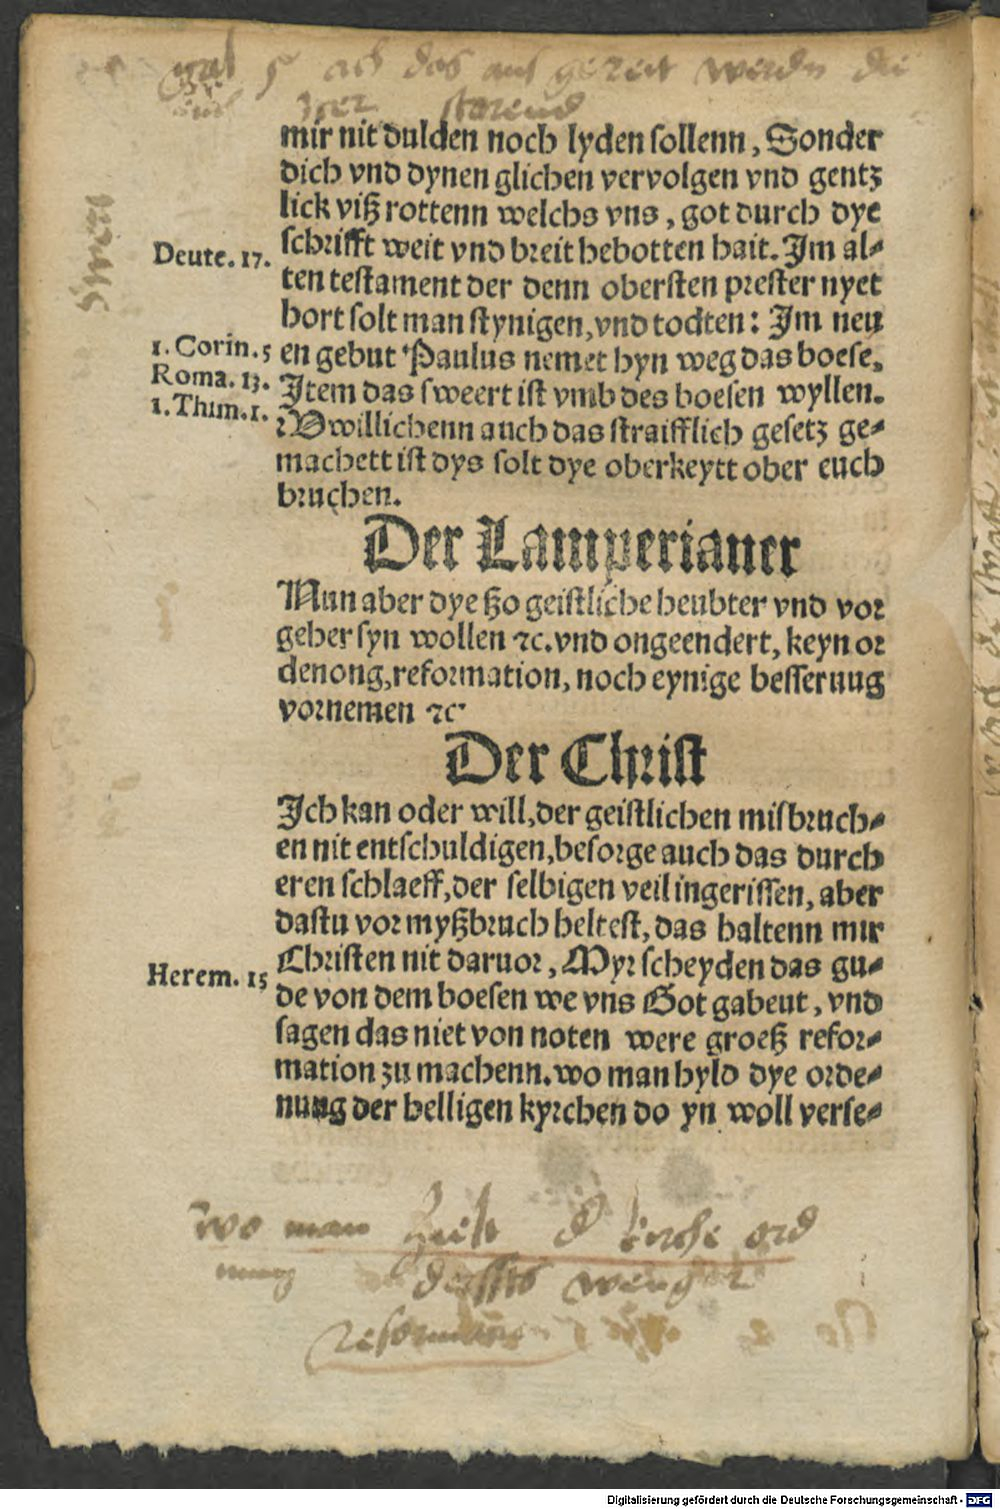 ach das aus gereit werden die
mir nit dulden noch lyden sollenn, Sonder
dich vnd dynen glichen vervolgen vnd gentz
lick viß rottenn welchs vns, got durch dye
schrifft weit vnd breit hebotten hait. Im al-
Deute. 17.
ten testament der denn obersten prester nyet
hort solt man stynigen, vnd tochten: Im neu
en gebut Paulus nemet hyn weg das boese,
1. Corin. 5
Item das sweert ist vmb des boesen wyllen.
Roma. 13.
Vwillichenn auch das straifflich gesetz ge-
1. Thim. 1.
machett ist dys solt dye oberkeytt ober euch
bruchen.
Der Lamperianer
Nun aber dye tzo geistliche heubter vnd vor
geher syn wollen ⁊c. vnd ongeendert, keyn or
denong, reformation, noch eynige besseruug
vornemen ⁊c
Der Christ
Ich kan oder will, der geistlichen misbruch-
en nit entschuldigen, besorge auch das durch
eren schlaeff, der selbigen veil ingerissen, aber
dastu vor myßbruch heltest, das haltenn mir
Christen nit daruor, Myr scheyden das gu-
Herem. 15
de von dem boesen we vns Got gabeut, vnd
sagen das niet von noten were groeß refor-
mation zu machenn. wo man hyld dye orde-
nung der helligen kyrchen do yn woll verse-
wo man hielt d kirche ord
nung desses weniger
reformation
Digitalisierung gefördert durch die Deutsche Forschungsgemeinschaft - DFG